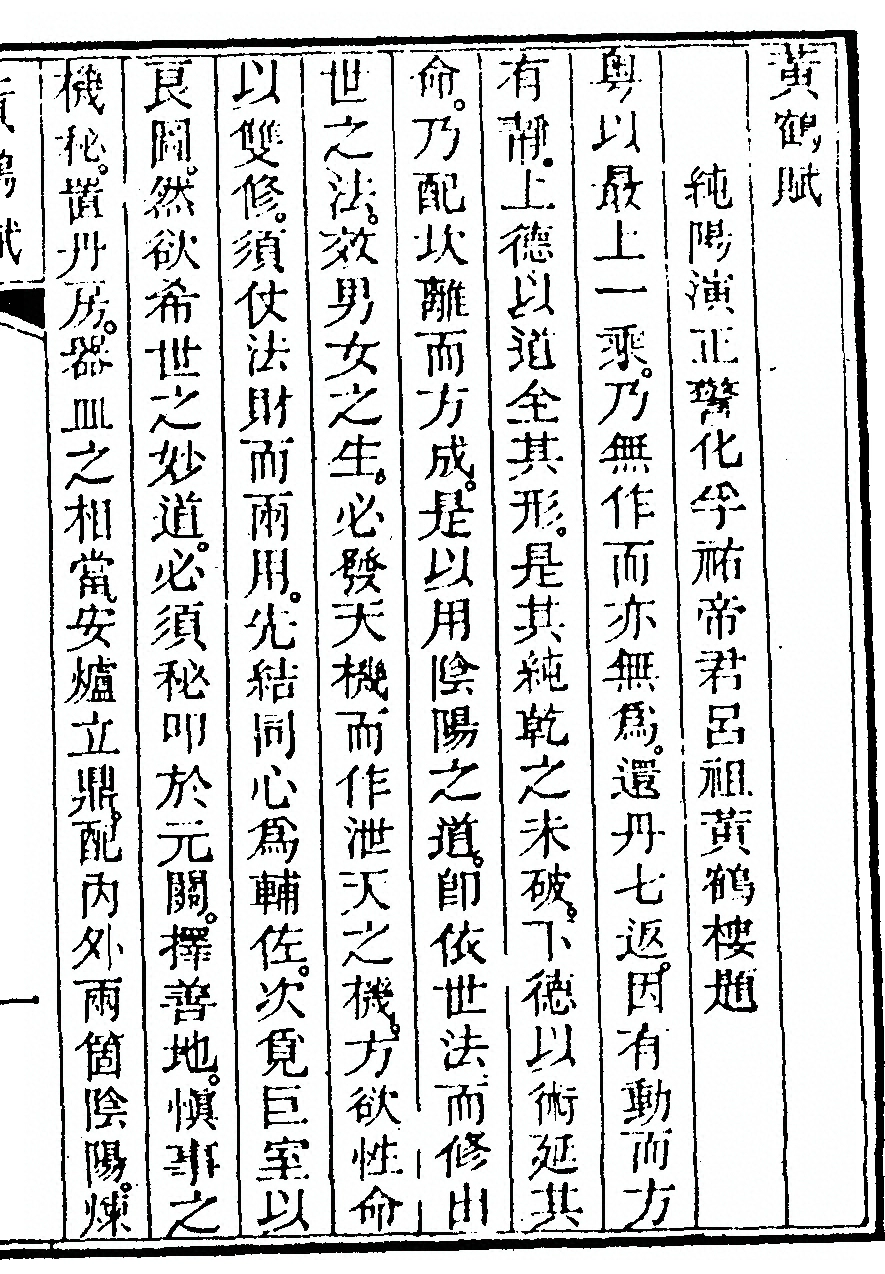 黃鶴賦
純陽演正警化孚祐帝君呂祖黃鶴樓題
粵以最上一乘。乃無作而亦無爲。還丹七返。因有動而方
有靜。上德以道全其形。是其純乾之未破。下德以術延其
命。乃配坎離而方成。是以用陰陽之道。卽依世法而修出
世之法。效男女之生。必發天機而作泄天之機。方欲性命
以雙修。須仗法財而兩用。先結同心爲輔佐。次覓巨室以
良圖。然欲希世之妙道。必須秘叩於元關。擇善地。愼事之
機秘。置丹房。器皿之相當。安爐立鼎。配內外兩箇陰陽。煉
黃鶴賦
一